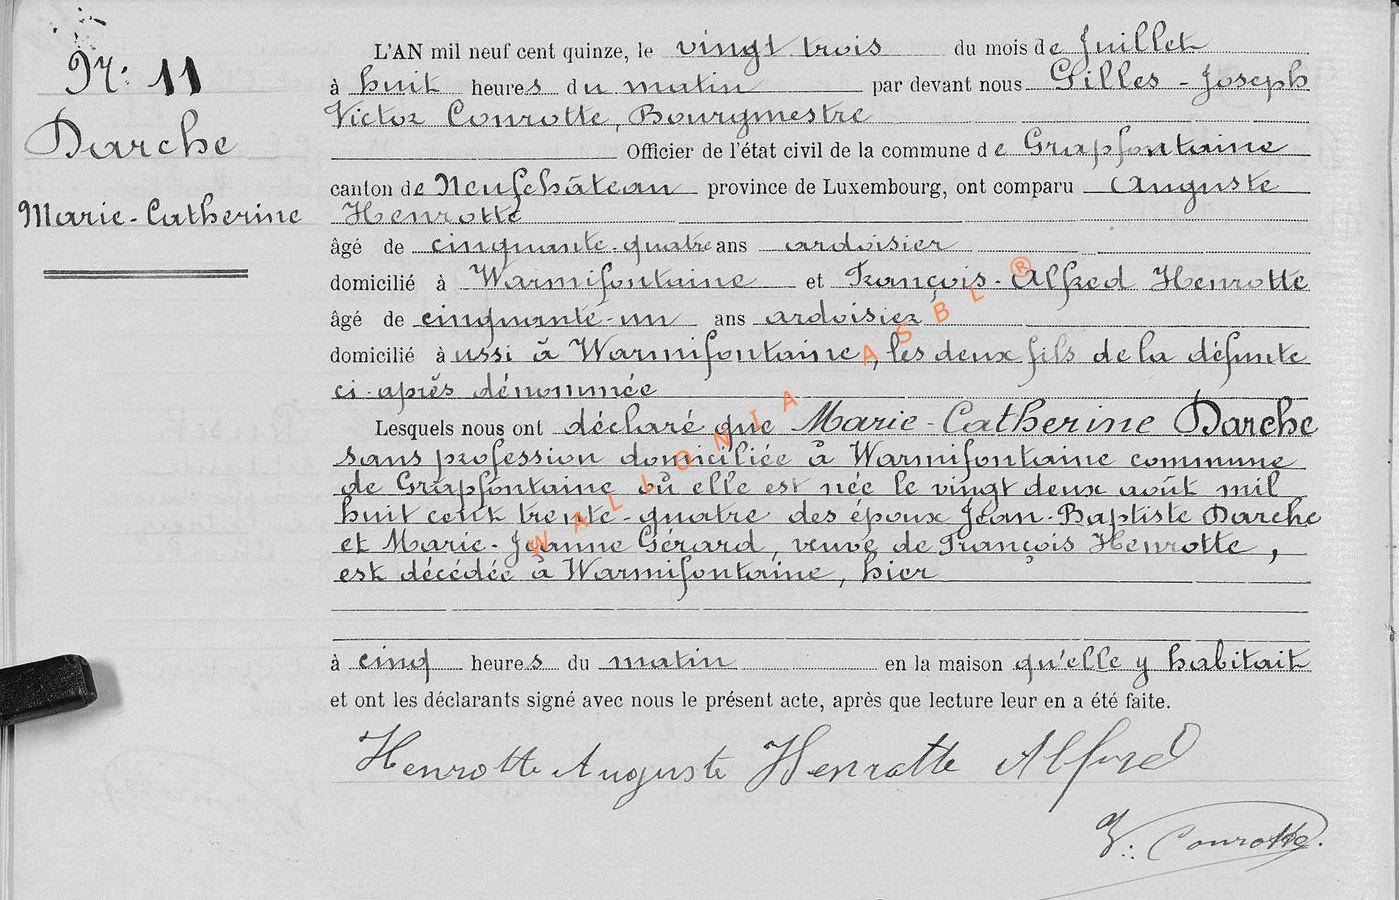 Nr: 11
Darche
Marie-Catherine
L'AN mil neuf cent quinze, le vingt trois du mois de Juillet
à huit heures du matin par devant nous Gilles-Joseph
Victor Conrotte, Bourgmestre
Officier de l'état civil de la commune de Grapfontaine
canton de Neufchâteau province de Luxembourg, ont comparu Auguste
Henrotte
âgé de cinquante-quatre ans ardoisier
domicilié à Warmifontaine et François-Alfred Henrotte
âgé de cinquante-un ans ardoisier
domicilié aussi à Warmifontaine, les deux fils de la défunte
ci-après dénommée
Lesquels nous ont déclaré que Marie-Catherine Darche
sans profession domiciliée à Warmifontaine commune
de Grapfontaine où elle est née le vingt deux août mil
huit cent trente-quatre des époux Jean-Baptiste Darche
et Marie-Jeanne Gérard, veuve de François Henrotte,
est décédée à Warmifontaine, hier
à cinq heures du matin en la maison qu'elle y habitait
et ont les déclarants signé avec nous le présent acte, après que lecture leur en a été faite.
Henrotte Auguste Henrotte Alfred
V. Conrotte.
WALLONIA ASBL ®